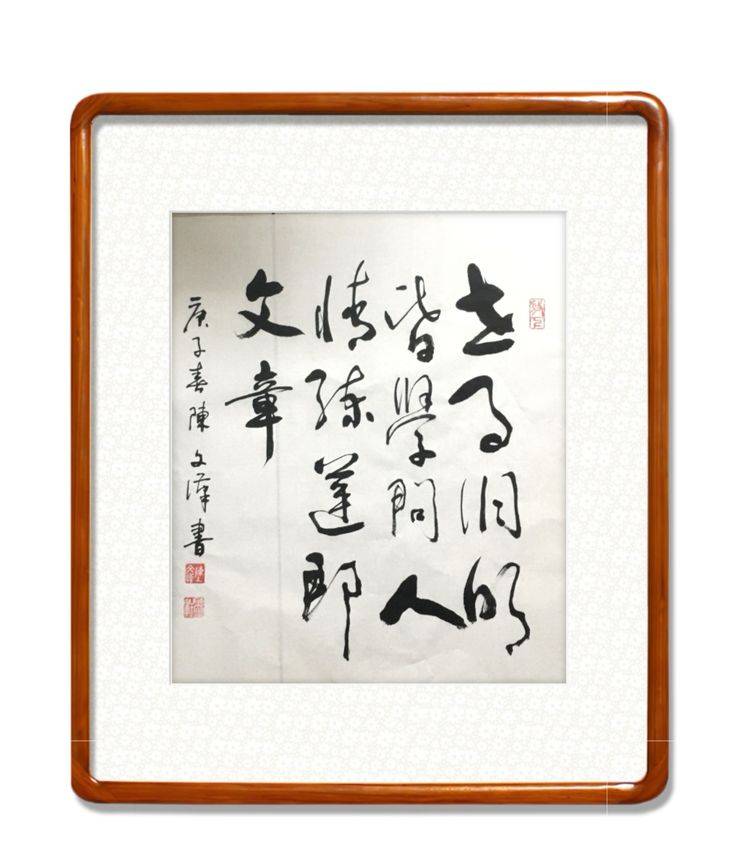 世事洞明
皆學問人
情練達即
文章
庚子春陳文漢書